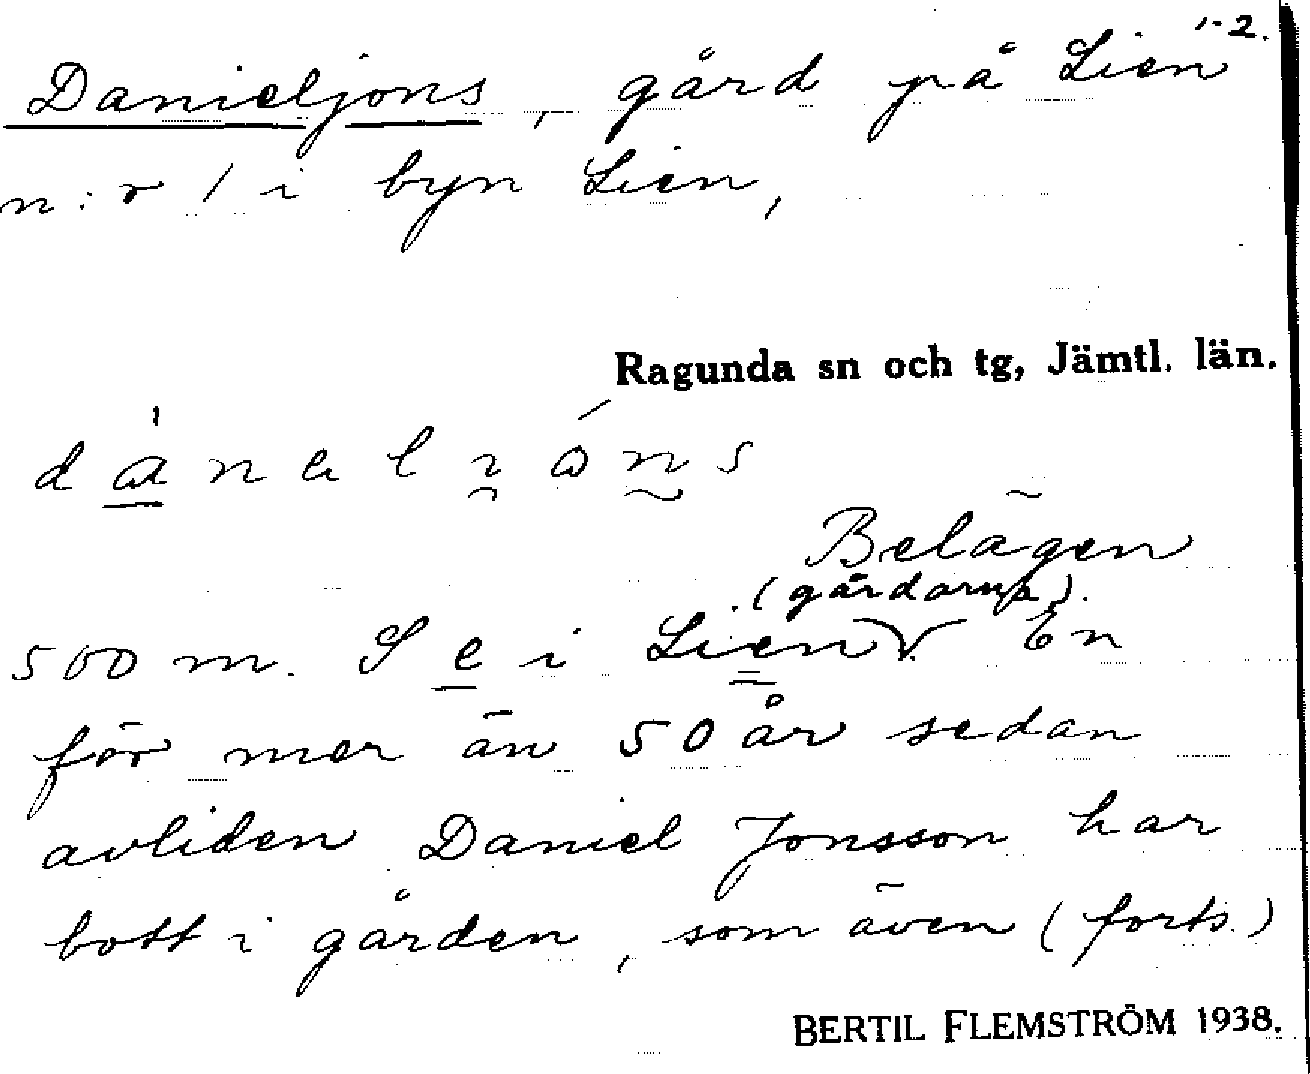 1-2.
Danieljons, gård på Lien
n:r 1 i byn Lien,
Ragunda sn och tg, Jämtl. län.
Belägen
(gårdarna).
500 m. S e i Lien. En
för mer än 50 år sedan
avliden Daniel Jonsson har
bott i gården, som även (forts.)
BERTIL FLEMSTRÖM 1938.